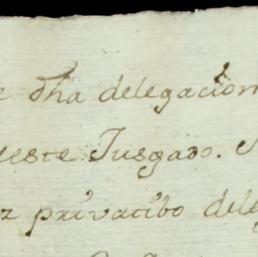 e dha delegacion
este Jusgado.
privatibo dele